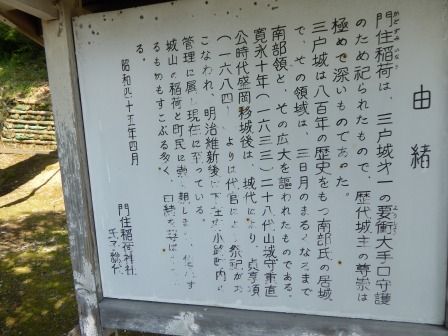 由緒
門住稲荷は、三戸城才一の要衝大手口守護
のため祀られたもので、歴代城主の尊崇は
極めて深いものであった。
三戸城は八百年の歴史をもつ南部氏の居城
で、その領域は、三日月のまるくなるまで
南部領と、その広大を謳われたものである。
寛永十年(一六三三)二十八代山城守重直
公時代盛岡移城後は、城代により、貞享項
(一六八四)よりは代官により祭祀がお
こなわれ、明治維新後は在府小路町内の
管理に属し現在に至っている。
城山の稲荷と町民に崇
るものもすこぶる多く、
る。
昭和四十五年四月
門住稲荷神社
氏子総代